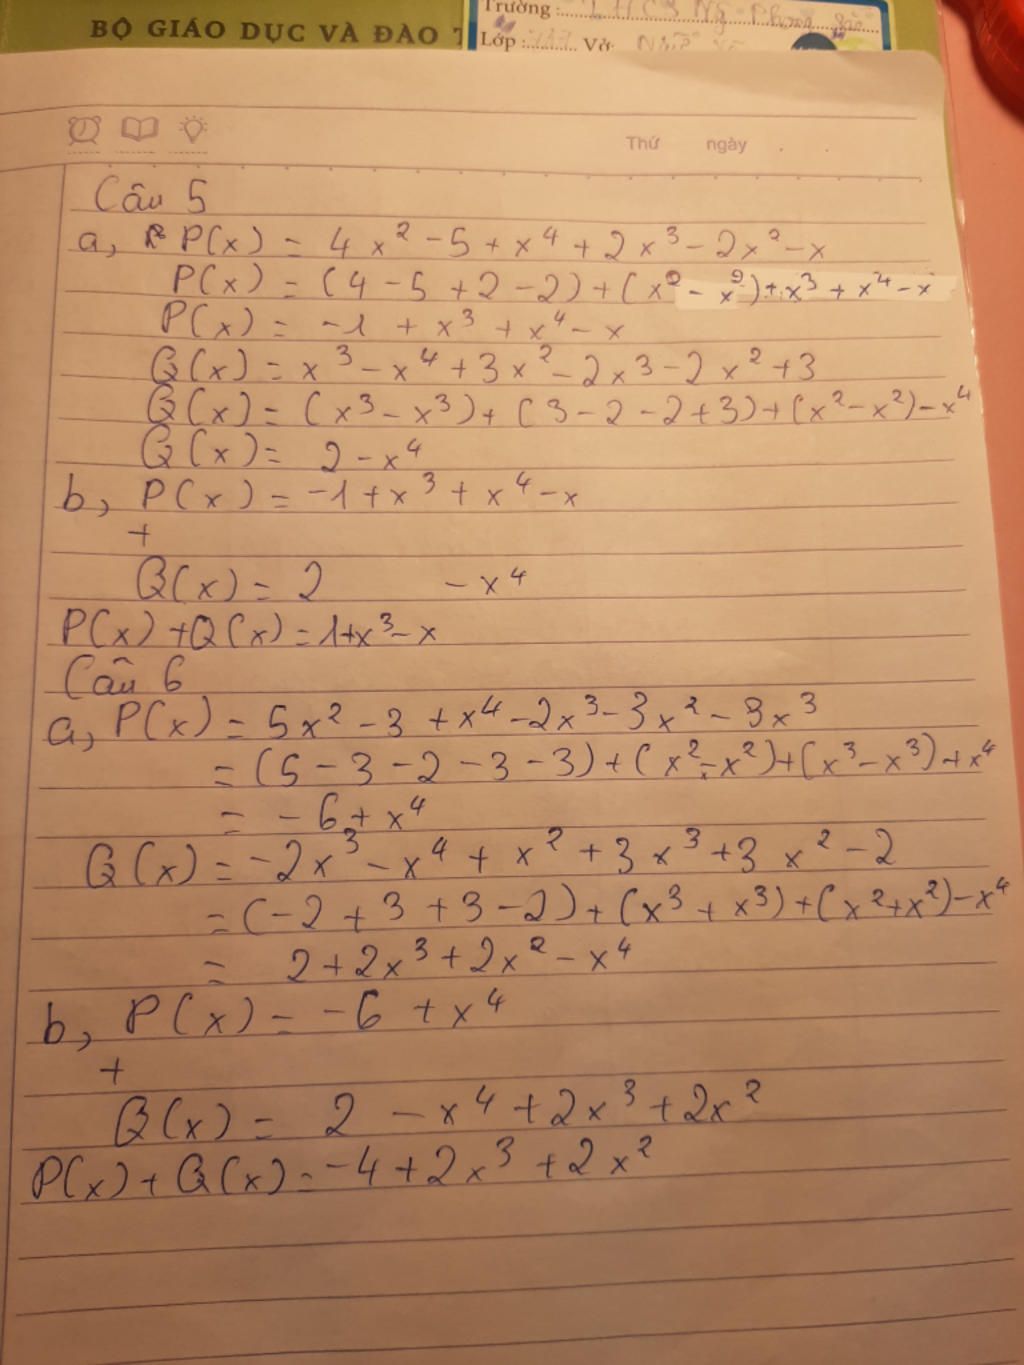 BỘ GIÁO DỤC VÀ ĐÀO
Trường : THCS Ng Phong
Lớp : 7A7 Vở:
Thứ ngày
Câu 5
a, P(x) = 4x² - 5 + x⁴ + 2x³ - 2x² - x
P(x) = (4 - 5 + 2 - 2) + (x² - x²) + x³ + x⁴ - x
P(x) = -1 + x³ + x⁴ - x
Q(x) = x³ - x⁴ + 3x² - 2x³ - 2x² + 3
Q(x) = (x³ - x³) + (3 - 2 - 2 + 3) + (x² - x²) - x⁴
Q(x) = 2 - x⁴
b, P(x) = -1 + x³ + x⁴ - x
+
Q(x) = 2 - x⁴
P(x) + Q(x) = 1 + x³ - x
Câu 6
a, P(x) = 5x² - 3 + x⁴ - 2x³ - 3x² - 3x³
= (5 - 3 - 2 - 3 - 3) + (x² - x²) + (x³ - x³) + x⁴
= -6 + x⁴
Q(x) = -2x³ - x⁴ + x² + 3x³ + 3x² - 2
= (-2 + 3 + 3 - 2) + (x³ + x³) + (x² + x²) - x⁴
= 2 + 2x³ + 2x² - x⁴
b, P(x) = -6 + x⁴
+
Q(x) = 2 - x⁴ + 2x³ + 2x²
P(x) + Q(x) = -4 + 2x³ + 2x²